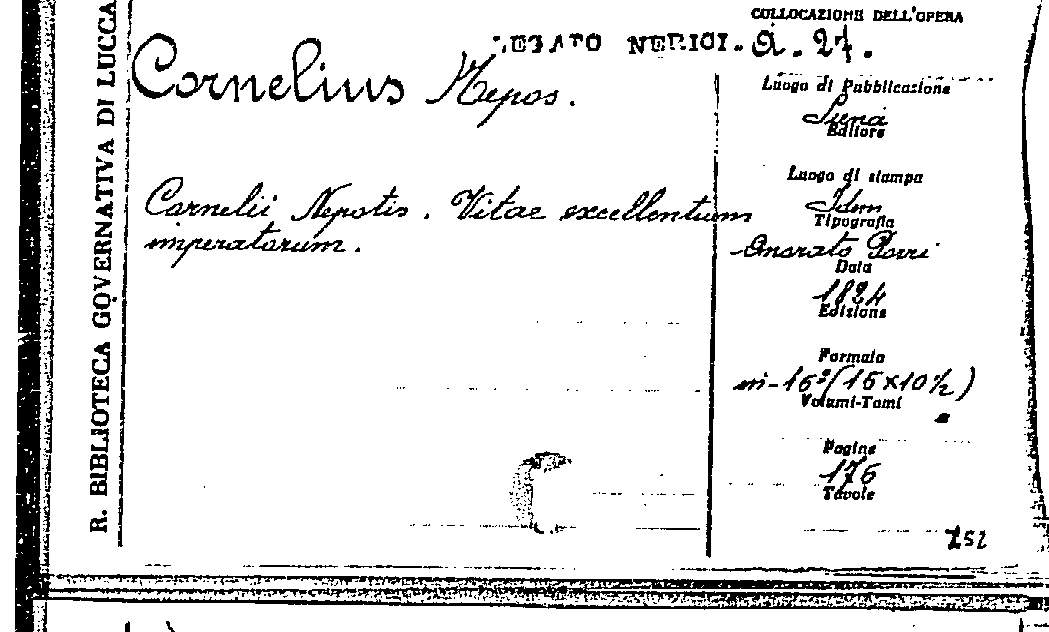 R. BIBLIOTECA GOVERNATIVA DI LUCCA
COLLOCAZIONE DELL'OPERA
LEGATO NERICI. Q. 27.
Cornelius Nepos.
Cornelii Nepotis. Vitae excellentium
imperatorum.
Luogo di Pubblicazione
Siena
Editore
Luogo di stampa
Idem
Tipografia
Onorato Porri
Data
1824
Edizione
Formato
in-16º (15 x 10 ½)
Volumi-Tomi
Pagine
176
Tavole
252